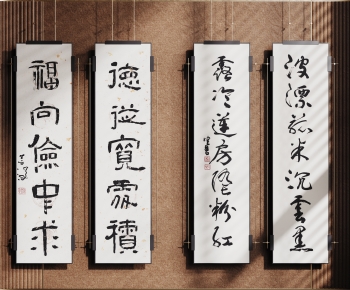 波漂菰米沉雲黑
露冷蓮房墜粉紅
德從寬處積
福向儉中求